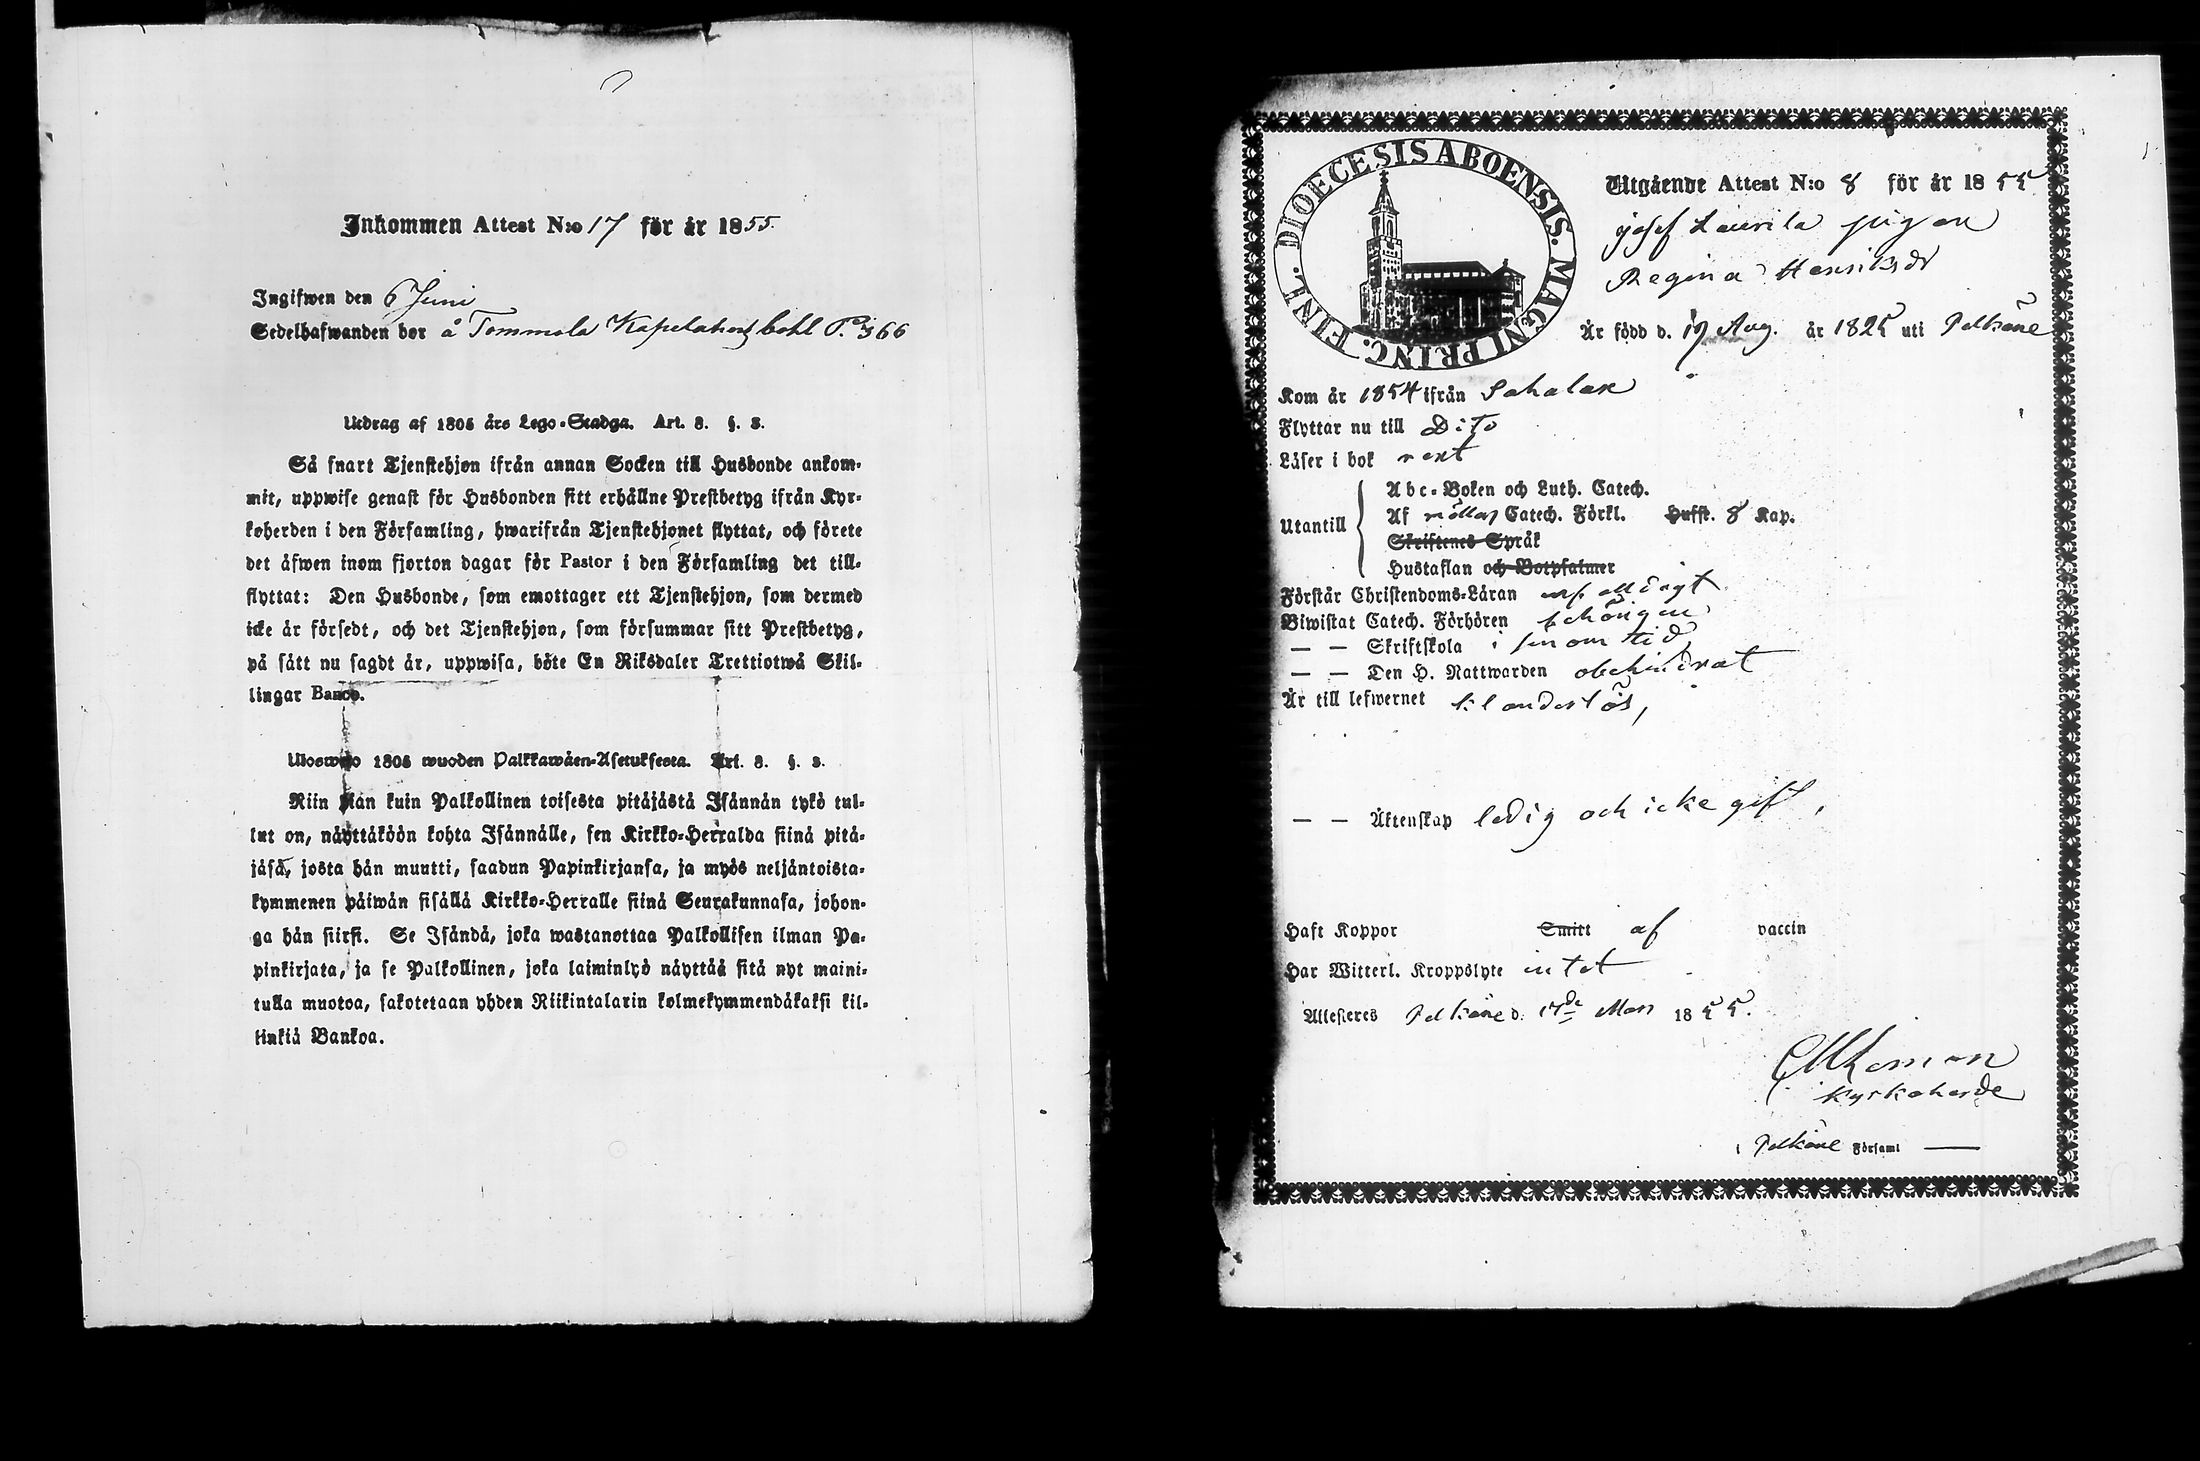 Inkommen Attest N:o 17 för år 1855.
Ingifwen den 6 Juni
Sedelhafwanden bor å Tommola Kapelahns bohl P. 366
Utdrag af 1805 års Lego-Stadga. Art. 8. §. 3.
Så snart Tjenstehjon ifrån annan Socken till Husbonde ankom-
mit, uppwise genast för Husbonden sitt erhållne Prestbetyg ifrån Kyr-
koherden i den Församling, hwarifrån Tjenstehjonet flyttat, och förete
det äfwen inom fjorton dagar för Pastor i den Församling det till-
flyttat: Den Husbonde, som emottager ett Tjenstehjon, som dermed
icke är försedt, och det Tjenstehjon, som försummar sitt Prestbetyg,
på sätt nu sagdt är, uppwisa, böte En Riksdaler Trettiotwå Skil-
lingar Banco.
Ulosweto 1805 wuoden Palkkawäen-Asetuksesta. Art. 8. §. 3.
Niin pian kuin Palkollinen toisesta pitäjästä Isännän tykö tul-
lut on, näyttäköön kohta Isännälle, sen Kirkko-Herralda siinä pitä-
jäsä, josta hän muutti, saadun Papinkirjansa, ja myös neljäntoista-
kymmenen päiwän sisällä Kirkko-Herralle siinä Seurakunnasa, johon-
ga hän siirsi. Se Isändä, joka wastanottaa Palkollisen ilman Pa-
pinkirjata, ja se Palkollinen, joka laiminlyö näyttää sitä nyt maini-
tulla muotoa, sakotetaan yhden Riikintalarin kolmekymmendäkaksi kil-
linkiä Bankoa.
DIOECESIS ABOENSIS. MAGNI PRINC. FINL.
Utgående Attest N:o 8 för år 1855
Josef Laurila pigan
Regina Henriksdr
Är född d. 19 Aug. år 1825 uti Pelkäne
Kom år 1854 ifrån Sahalax
Flyttar nu till Dito
Läser i bok rent
Abc-Boken och Luth. Catech.
Utantill Af Catech. Förkl. Husst. 8 Kap.
Skriftenes Språk
Hustaflan och Botpsalmer
Förstår Christendoms-Läran enfalldigt
Biwistat Catech. Förhören behörigen
— — Skriftskola i sinom tid
— — Den H. Nattwarden obehindrat
Är till lefwernet klanderlös,
— — Äktenskap ledig och icke gift,
Haft Koppor Smitt af vaccin
Har Witterl. Kroppslyte intet
Attesteres Pelkäne d. 17de Mars 1855.
Kyrkoherde
i Pelkäne Församl —